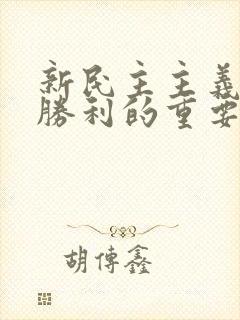 新民主主義
勝利的重要
胡傳鑫